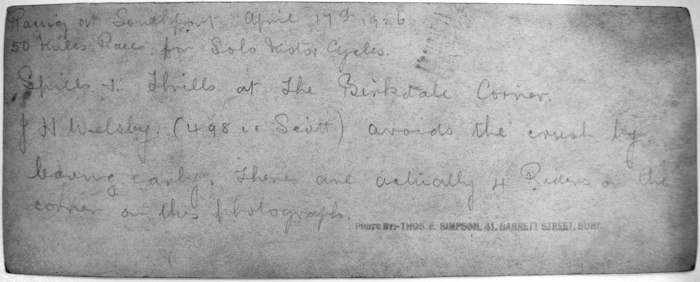 Racing at Southport April 17th 1926
50 Miles Race for Solo Motor Cycles.
Spills & Thrills at the Birkdale Corner.
J H Welsby. (498 cc Scott) avoids the crush by
leaving early. There are actually 4 Riders on the
corner on this photograph.
PHOTO BY:- THOS. E. SIMPSON, 41, GARRETT STREET, BURY.